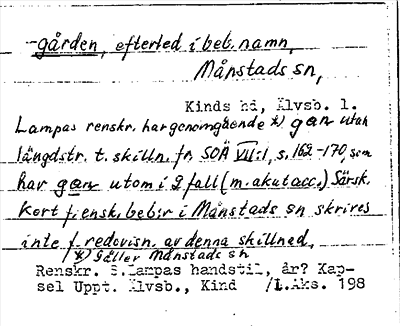 -gården, efterled i beb.namn,
Månstads sn,
Kinds hd, Älvsb. l.
Lampas renskr. har genomgående *) gan utan
längdstr. t. skilln. fr. SOÄ VII:1, s. 162-170, som
har gan utom i 2 fall (m. akut acc.) Särsk.
kort f. ensk. beb:r i Månstads sn skrives
inte f. redovisn. av denna skillnad.
*) Gäller Månstads sn
Renskr. S.Lampas handstil, år? Kap-
sel Uppt. Älvsb., Kind /L.Aks. 198